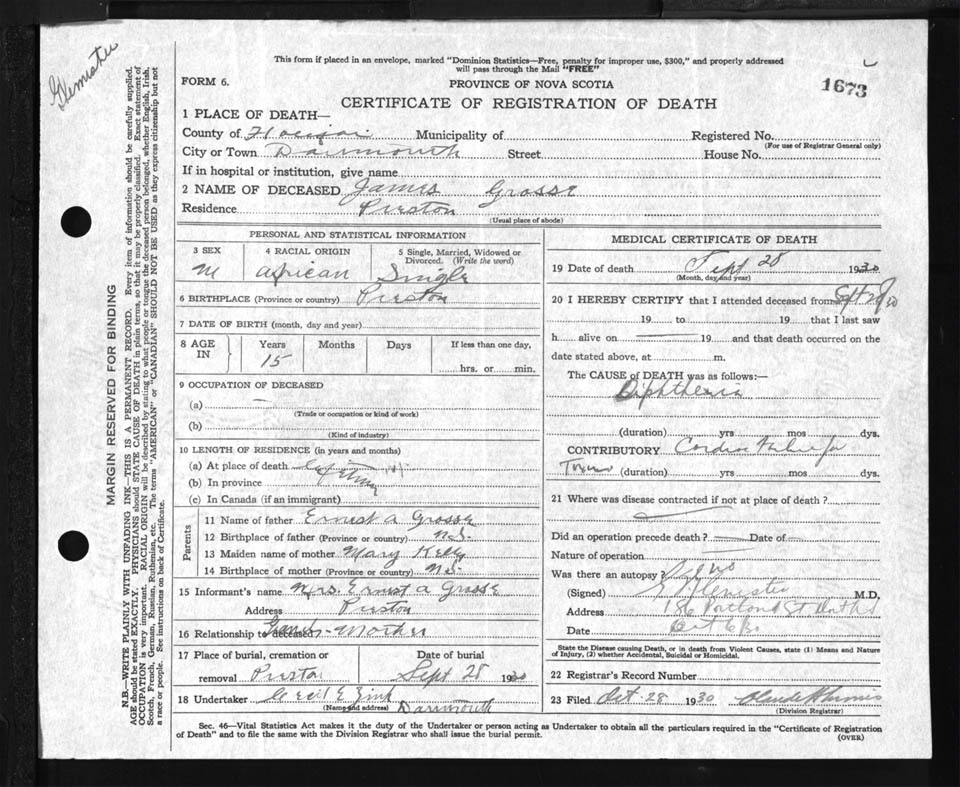 Glenister
This form if placed in an envelope, marked "Dominion Statistics—Free, penalty for improper use, $300," and properly addressed
will pass through the Mail "FREE"
FORM 6.
PROVINCE OF NOVA SCOTIA
1673
CERTIFICATE OF REGISTRATION OF DEATH
1 PLACE OF DEATH—
County of Municipality of Registered No.
(For use of Registrar General only)
City or Town Darmouth Street House No.
If in hospital or institution, give name
2 NAME OF DECEASED James Grosse
Residence Preston
(Usual place of abode)
PERSONAL AND STATISTICAL INFORMATION
3 SEX 4 RACIAL ORIGIN 5 Single, Married, Widowed or Divorced. (Write the word)
M African Single
6 BIRTHPLACE (Province or country) Preston
7 DATE OF BIRTH (month, day and year)
8 AGE IN Years Months Days If less than one day,
15 hrs. or min.
9 OCCUPATION OF DECEASED
(a) —
(Trade or occupation or kind of work)
(b)
(Kind of industry)
10 LENGTH OF RESIDENCE (in years and months)
(a) At place of death
(b) In province
(c) In Canada (if an immigrant)
Parents
11 Name of father Ernest A Grosse
12 Birthplace of father (Province or country) N.S.
13 Maiden name of mother Mary Kelly
14 Birthplace of mother (Province or country) N.S.
15 Informant's name Mrs. Ernest A Grosse
Address Preston
16 Relationship to deceased Mother
17 Place of burial, cremation or removal Preston
Date of burial Sept 28 1930
18 Undertaker Cecil E Zink
(Name and address) Darmouth
MEDICAL CERTIFICATE OF DEATH
19 Date of death Sept 28 1930
(Month, day and year)
20 I HEREBY CERTIFY that I attended deceased from Sept 28/30
19 to 19 that I last saw
h alive on 19 and that death occurred on the
date stated above, at m.
The CAUSE of DEATH was as follows:—
Diphtheria
(duration) yrs mos dys.
CONTRIBUTORY Cardiac
(duration) yrs mos dys.
21 Where was disease contracted if not at place of death?
Did an operation precede death? — Date of
Nature of operation
Was there an autopsy? no
(Signed) Glenister M.D,
Address 186 Portland St
Date Oct 6/30
State the Disease causing Death, or in death from Violent Causes, state (1) Means and Nature
of Injury, (2) whether Accidental, Suicidal or Homicidal.
22 Registrar's Record Number
23 Filed Oct 28 1930
(Division Registrar)
Sec. 46—Vital Statistics Act makes it the duty of the Undertaker or person acting as Undertaker to obtain all the particulars required in the "Certificate of Registration
of Death" and to file the same with the Division Registrar who shall issue the burial permit.
(OVER)
MARGIN RESERVED FOR BINDING
N.B.—WRITE PLAINLY WITH UNFADING INK—THIS IS A PERMANENT RECORD. Every item of information should be carefully supplied.
AGE should be stated EXACTLY. PHYSICIANS should STATE CAUSE OF DEATH in plain terms, so that it may be properly classified. Exact statement of
OCCUPATION is very important. RACIAL ORIGIN will be described by stating to what people or tongue the deceased person belonged, whether English, Irish,
Scotch, French, German, Russian, Ruthenian, etc. The terms "AMERICAN" or "CANADIAN" SHOULD NOT BE USED as they express citizenship but not
a race or people. See instructions on back of Certificate.